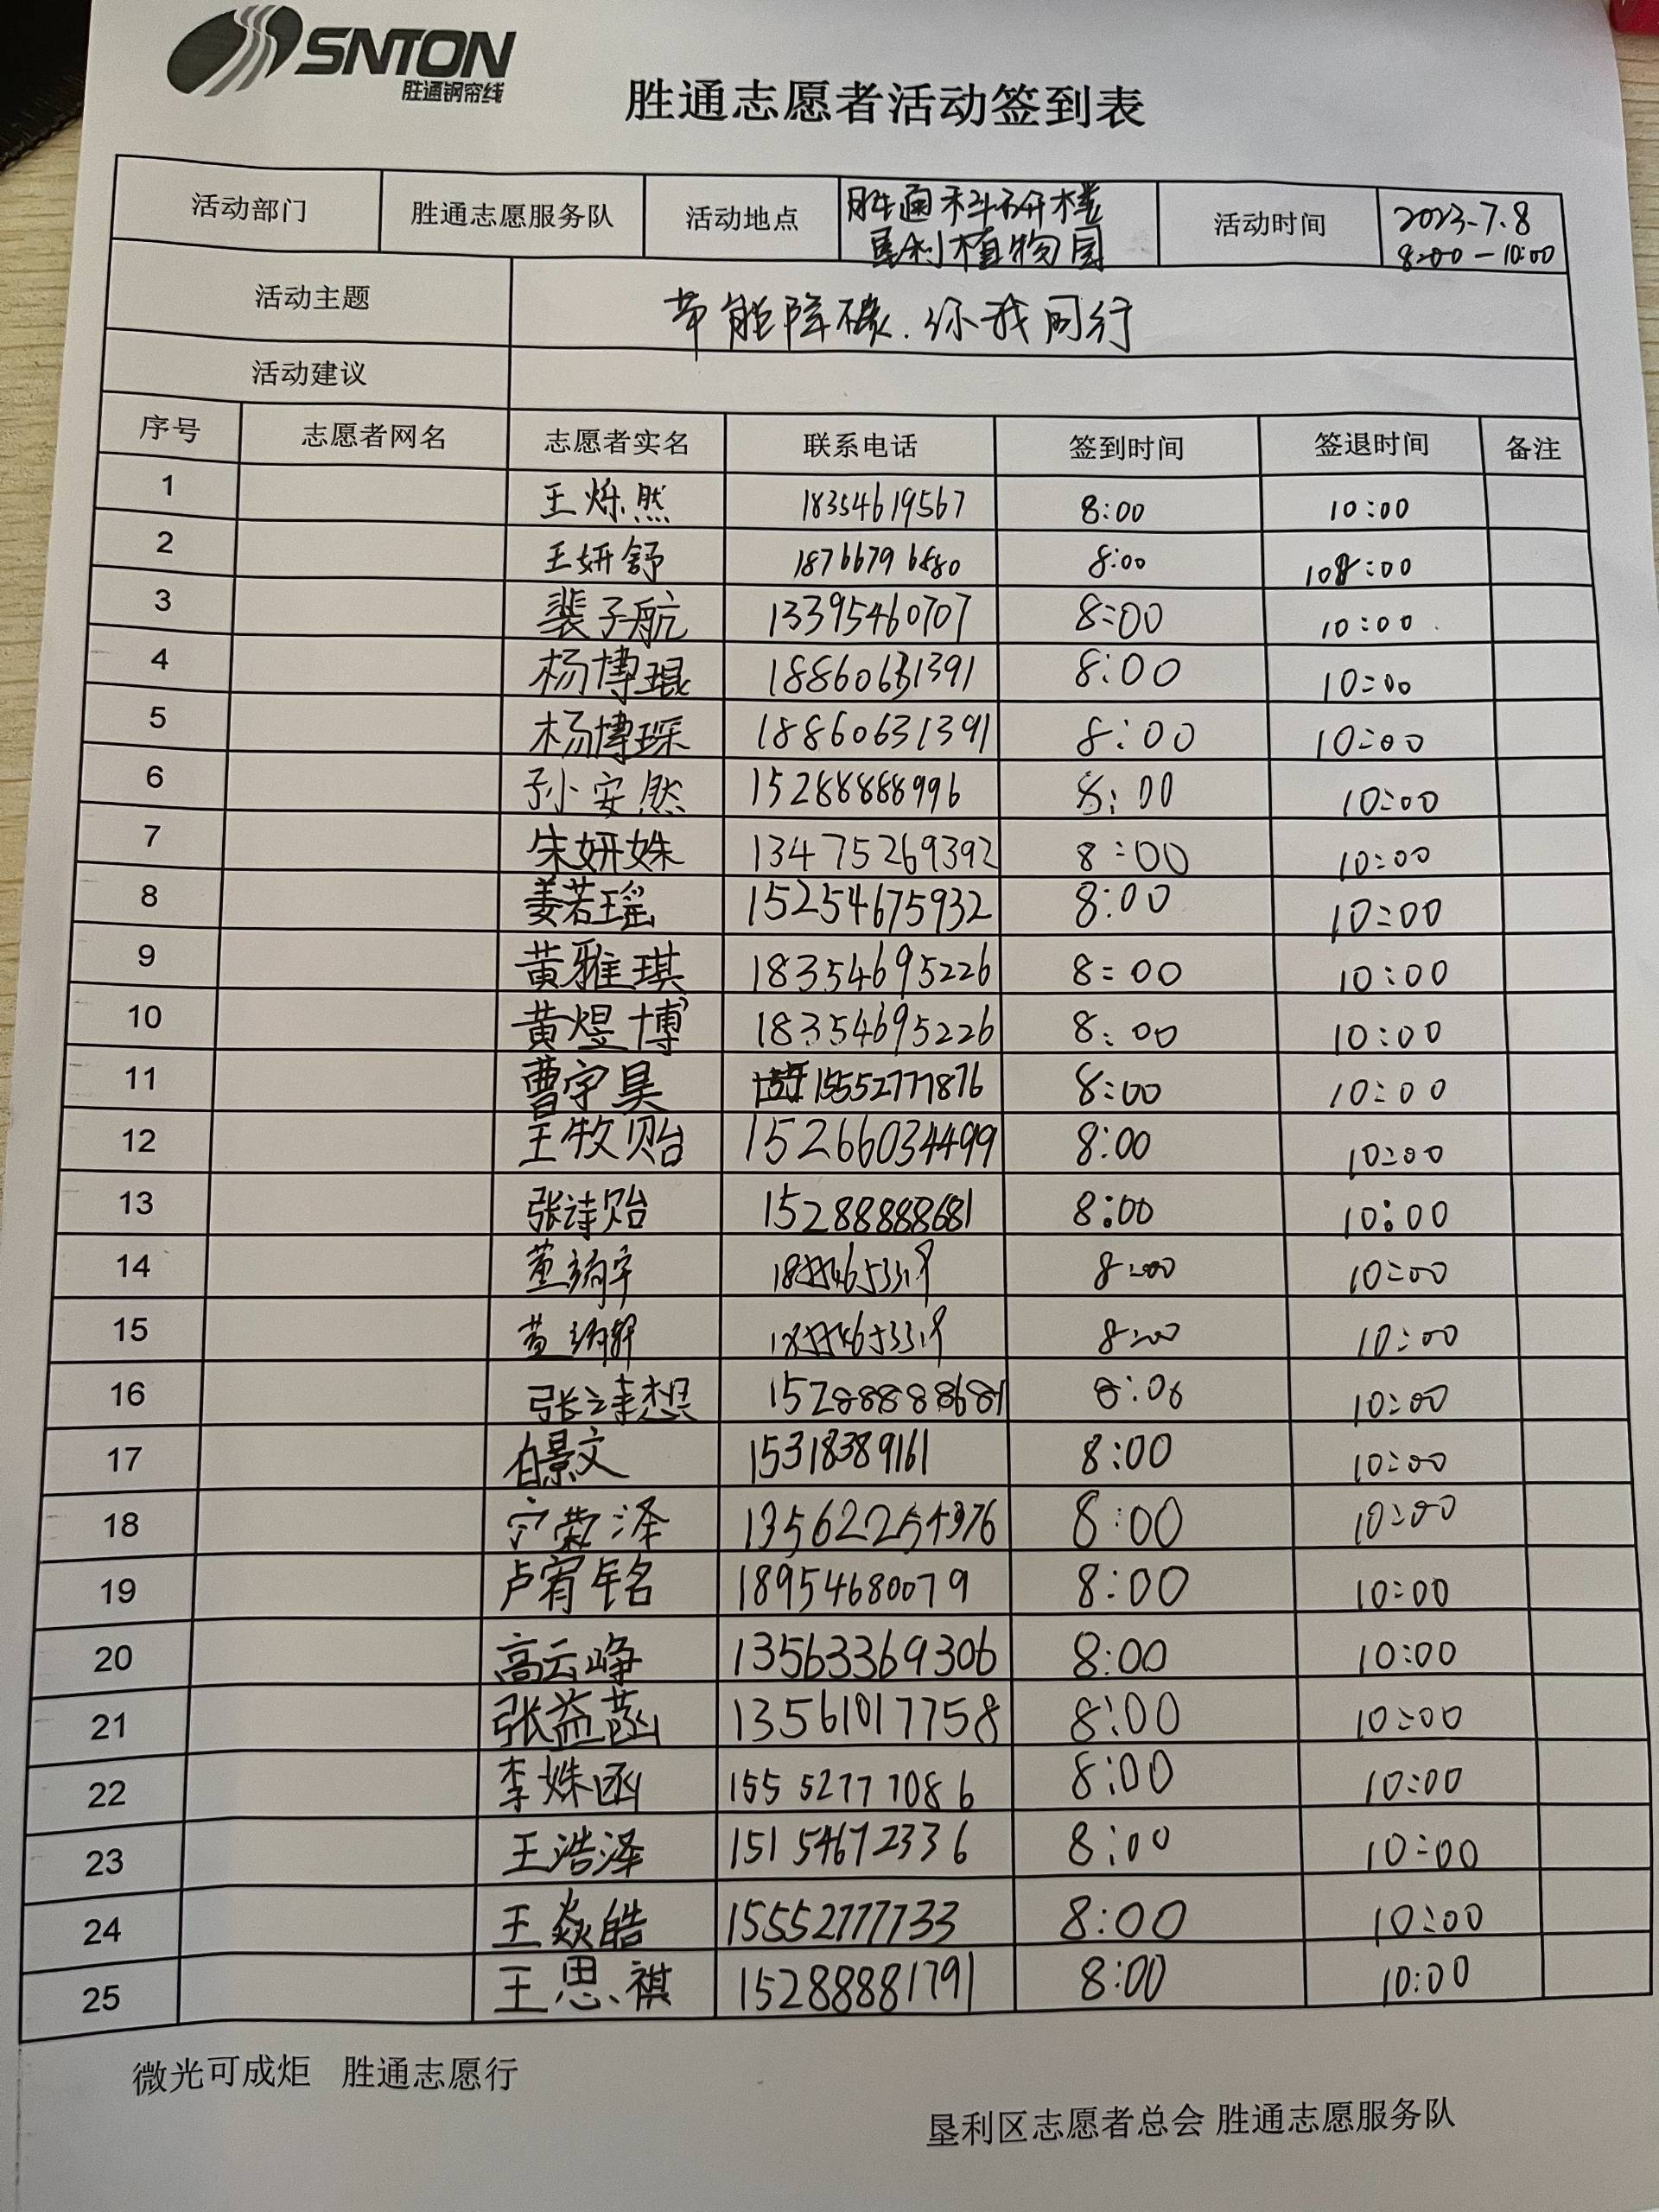 SNTON
胜通钢帘线
胜通志愿者活动签到表
活动部门 胜通志愿服务队 活动地点 胜通科研楼 垦利植物园 活动时间 2023.7.8 8:00-10:00
活动主题 节能降碳.你我同行
活动建议
序号 志愿者网名 志愿者实名 联系电话 签到时间 签退时间 备注
1 王烁然 18354619567 8:00 10:00
2 王妍舒 18766796880 8:00 10:00
3 裴子航 13395460707 8:00 10:00
4 杨博琨 18860631391 8:00 10:00
5 杨博琛 18860631391 8:00 10:00
6 孙安然 15288888996 8:00 10:00
7 朱妍姝 13475269392 8:00 10:00
8 姜若瑶 15254675932 8:00 10:00
9 黄雅琪 18354695226 8:00 10:00
10 黄煜博 18354695226 8:00 10:00
11 曹宇昊 15552777876 8:00 10:00
12 王牧贻 15266034499 8:00 10:00
13 张诗贻 15288888681 8:00 10:00
14 8:00 10:00
15 8:00 10:00
16 张诗想 15288888681 8:00 10:00
17 白景文 15318389161 8:00 10:00
18 宁荣泽 13562254376 8:00 10:00
19 卢宥铭 18954680079 8:00 10:00
20 高云峥 13563369306 8:00 10:00
21 张益菡 13561017758 8:00 10:00
22 李姝函 15552777086 8:00 10:00
23 王浩泽 15154672336 8:00 10:00
24 王焱皓 15552777733 8:00 10:00
25 王思祺 15288881791 8:00 10:00
微光可成炬 胜通志愿行
垦利区志愿者总会 胜通志愿服务队